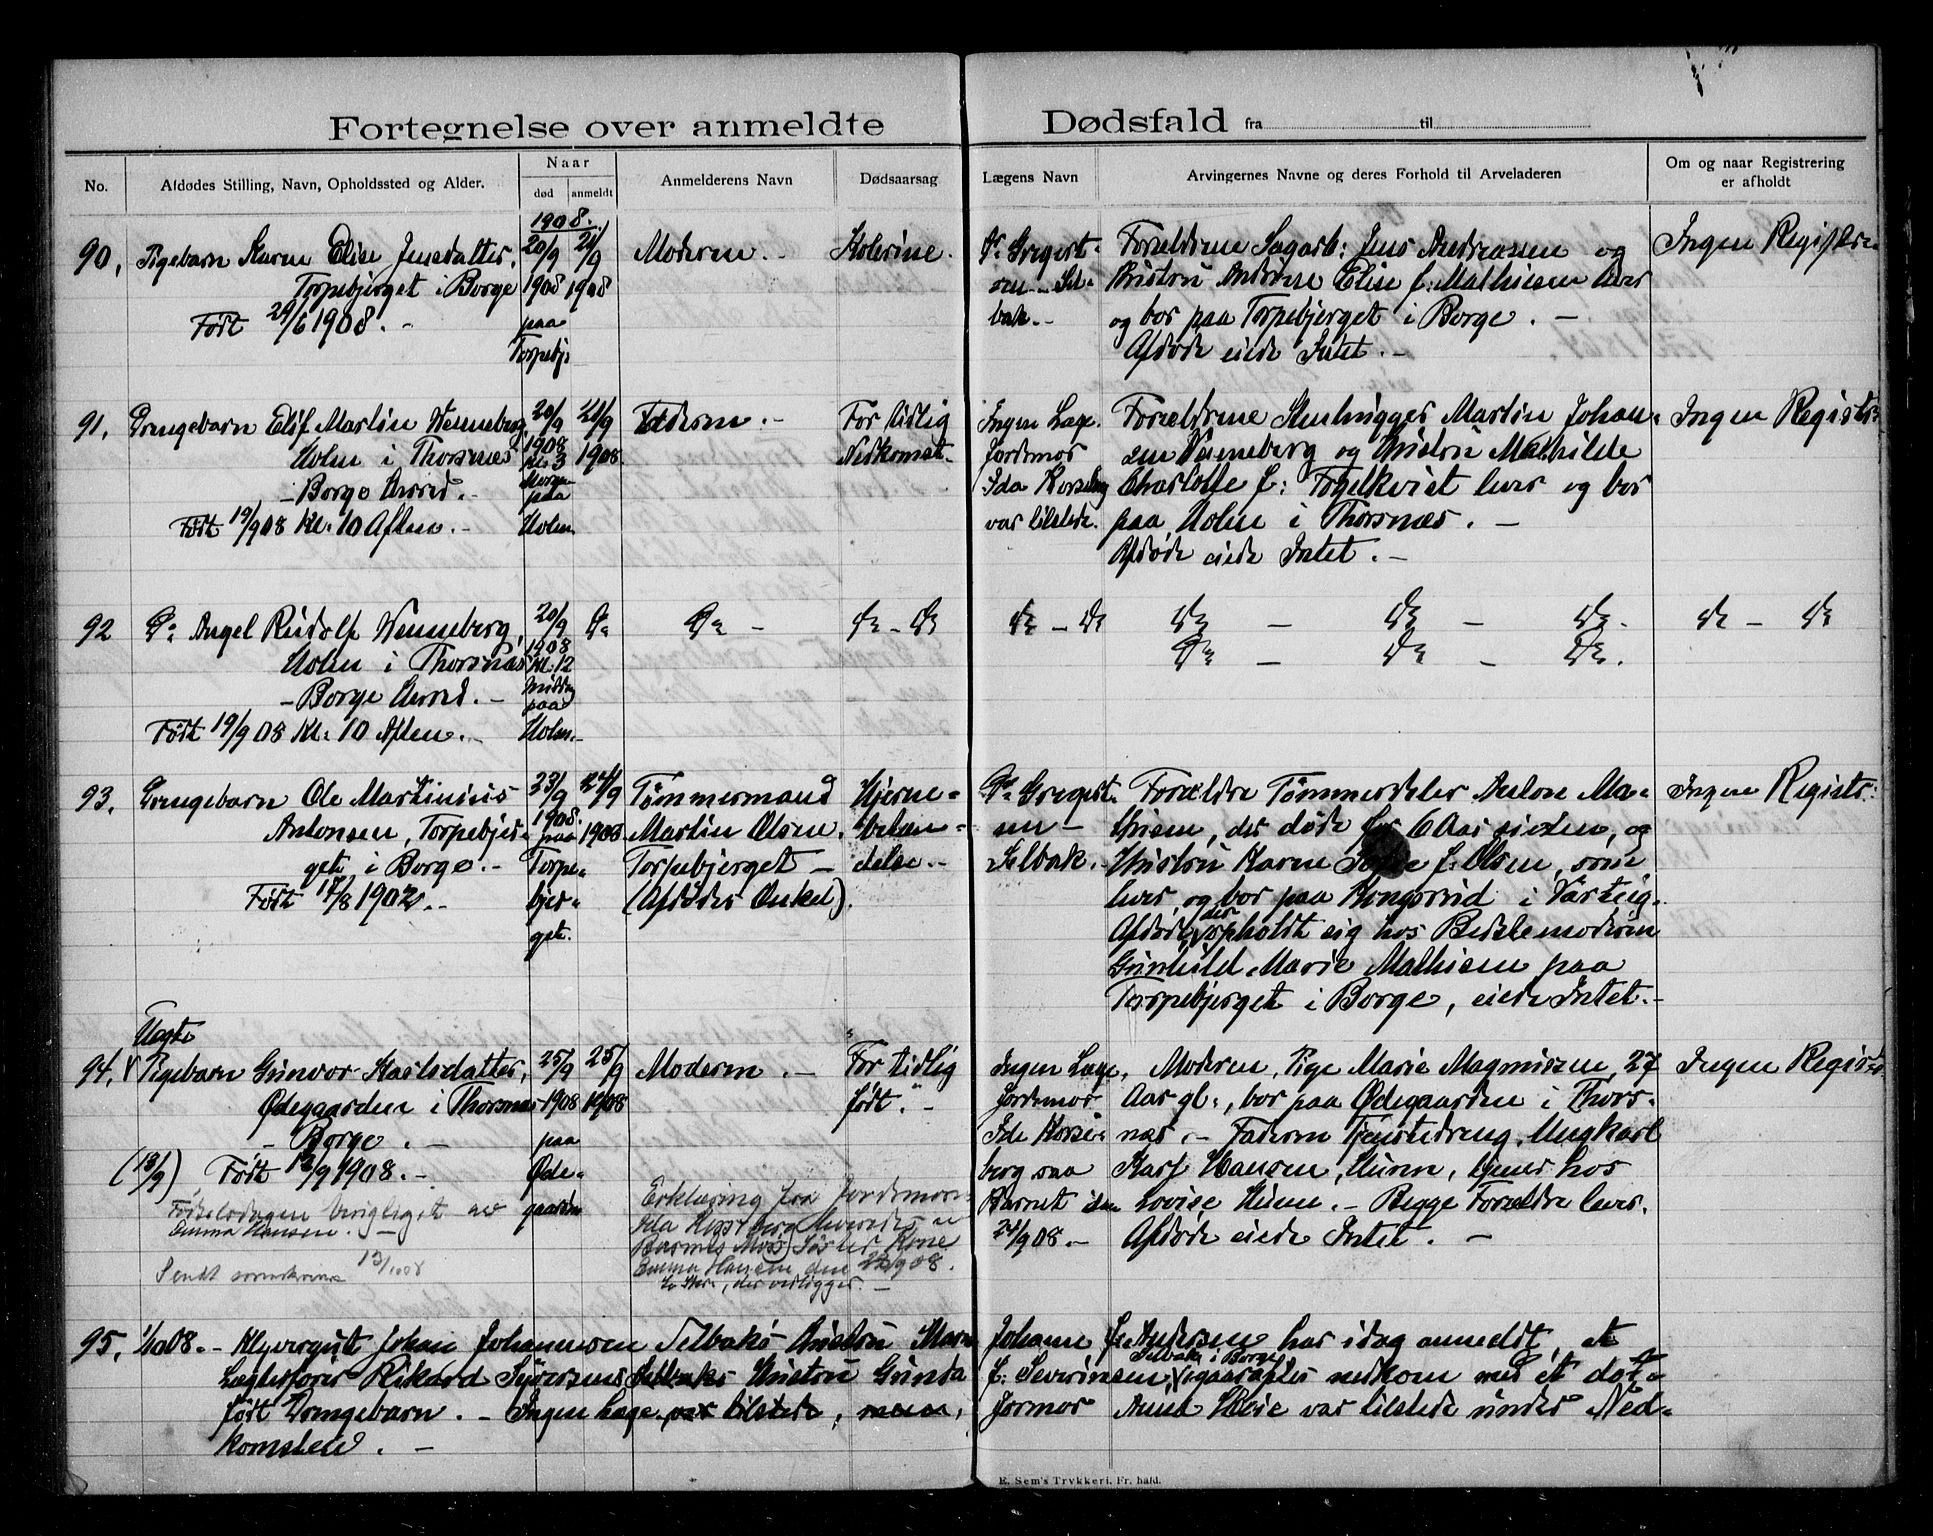 Fortegnelse over anmeldte Dødsfald fra til
No.
Afdødes Stilling, Navn, Opholdssted og Alder.
Naar
død
anmeldt
Anmelderens Navn
Dødsaarsag
Lægens Navn
Arvingernes Navne og deres Forhold til Arveladeren
Om og naar Registrering
er afholdt
90.
Pigebarn Karen Elise Jensdatter,
Torpebjerget i Borge
Født 29/6 1908. -
1908.
20/9
1908
paa
Torpebj:
21/9
1908
Moderen. -
Kolerine.
Dr Gregert-
sen - Sel-
bak. -
Forældrene Sagarb: Jens Andreassen og
Hustru Andrine Elise f: Mathisen lever
og bor paa Torpebjerget i Borge. -
Afdøde eiede Intet. -
Ingen Registre-
91.
Drengebarn Elif Martin Wenneberg,
Holm i Thorsnæs
- Borge Herred. -
Født 19/9 08 Kl. 10 Aften. -
20/9
1908
Kl. 3
Morgen
paa
Holm
21/9
1908.
Faderen. -
For tidlig
Nedkomst.
Ingen Læge.
Jordemor
Ida Korsberg
var tilstede.
Forældrene Stenhugger Martin Johan-
sen Venneberg og Hustru Mathilde
Charlotte f: Fogelkvist lever og bor
paa Holm i Thorsnæs. -
Afdøde eiede Intet. -
Ingen Registr:
92
Do Angel Rudolf Wenneberg,
Holm i Thorsnæs
- Borge Herred. -
Født 19/9 08 Kl. 10 Aften. -
20/9
1908
Kl. 12
Middag
paa
Holm. -
Do
Do -
Do - Do
Do - Do
Do - Do - Do -
Do - Do - Do.
Do - Do
93.
Drengebarn Ole Martinius
Antonsen, Torpebjer-
get i Borge. -
Født 17/8 1902. -
23/9
1908.
paa
Torpe-
bjer-
get.
24/9
1908
Tømmermand
Martin Olsen,
Torpebjerget -
(Afdødes Onkel).
Hjerne-
betæn-
delse. -
Dr Gregert-
sen -
Selbak. -
Forældre Tømmerdeler Anton Ma-
thisen, der døde for 6 Aar siden, og
Hustru Karen f: Olsen, som
lever, og bor paa Kongsrud i Varteig.
Afdøde, der opholdt sig hos Bedstemoderen
Gunhild Marie Mathisen paa
Torpebjerget i Borge, eiede Intet. -
Ingen Registr:
94.
Uægte
Pigebarn Gunvor Karlsdatter,
Ødegaarden i Thorsnæs
- Borge. -
(13/9) Født 12/9 1908. -
Fødselsdagen berigtiget av
Emma Hansen. -
Sendt 13/10 08
25/9
1908
paa
Øde-
gaarden
25/9
1908
Moderen. -
Erklæring fra Jordemor
Ida Korsberg
Barnets Mors Søster Kone
Emma Hansen den 08.
der vedlægges. -
"For tidlig
født." -
Ingen Læge,
Jordemor
Ida Korse-
berg saa
Barnet den
24/9 08. -
Moderen, Pige Marie Magnussen, 27
Aar gl:, bor paa Ødegaarden i Thors-
næs. - Faderen Tjenestedreng, Ungkarl
Karl Hansen, Hunn, tjener hos
Lovise Hunn. - Begge Forældre lever.
Afdøde eiede Intet. -
Ingen Registr:
95.
1/10 08. - Klyvergut Johan Johannesen Selbaks Hustru Karen Johanne f: Andersen har idag anmeldt, at
Lægtesforer Rikard Syversens Selbaks Hustru Gunda f: Severinsen, Selbak i Borge, igaaraftes nedkom med et død-
født Drengebarn. - Ingen Læge var tilstede, men Jormor Anna Høie var tilstede under Ned-
komsten. -
E. Sem's Trykkeri, Fr.hald.